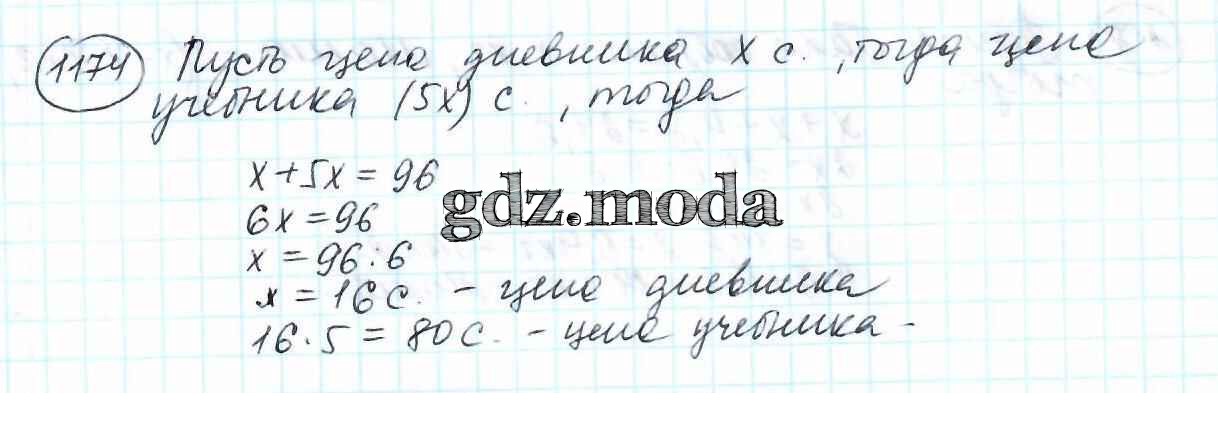 1174 Пусть цена дневника x с., тогда цена
учебника (5x) с., тогда
x+5x=96
gdz.moda
6x=96
x=96:6
x=16 с. - цена дневника
16·5=80 с. - цена учебника -